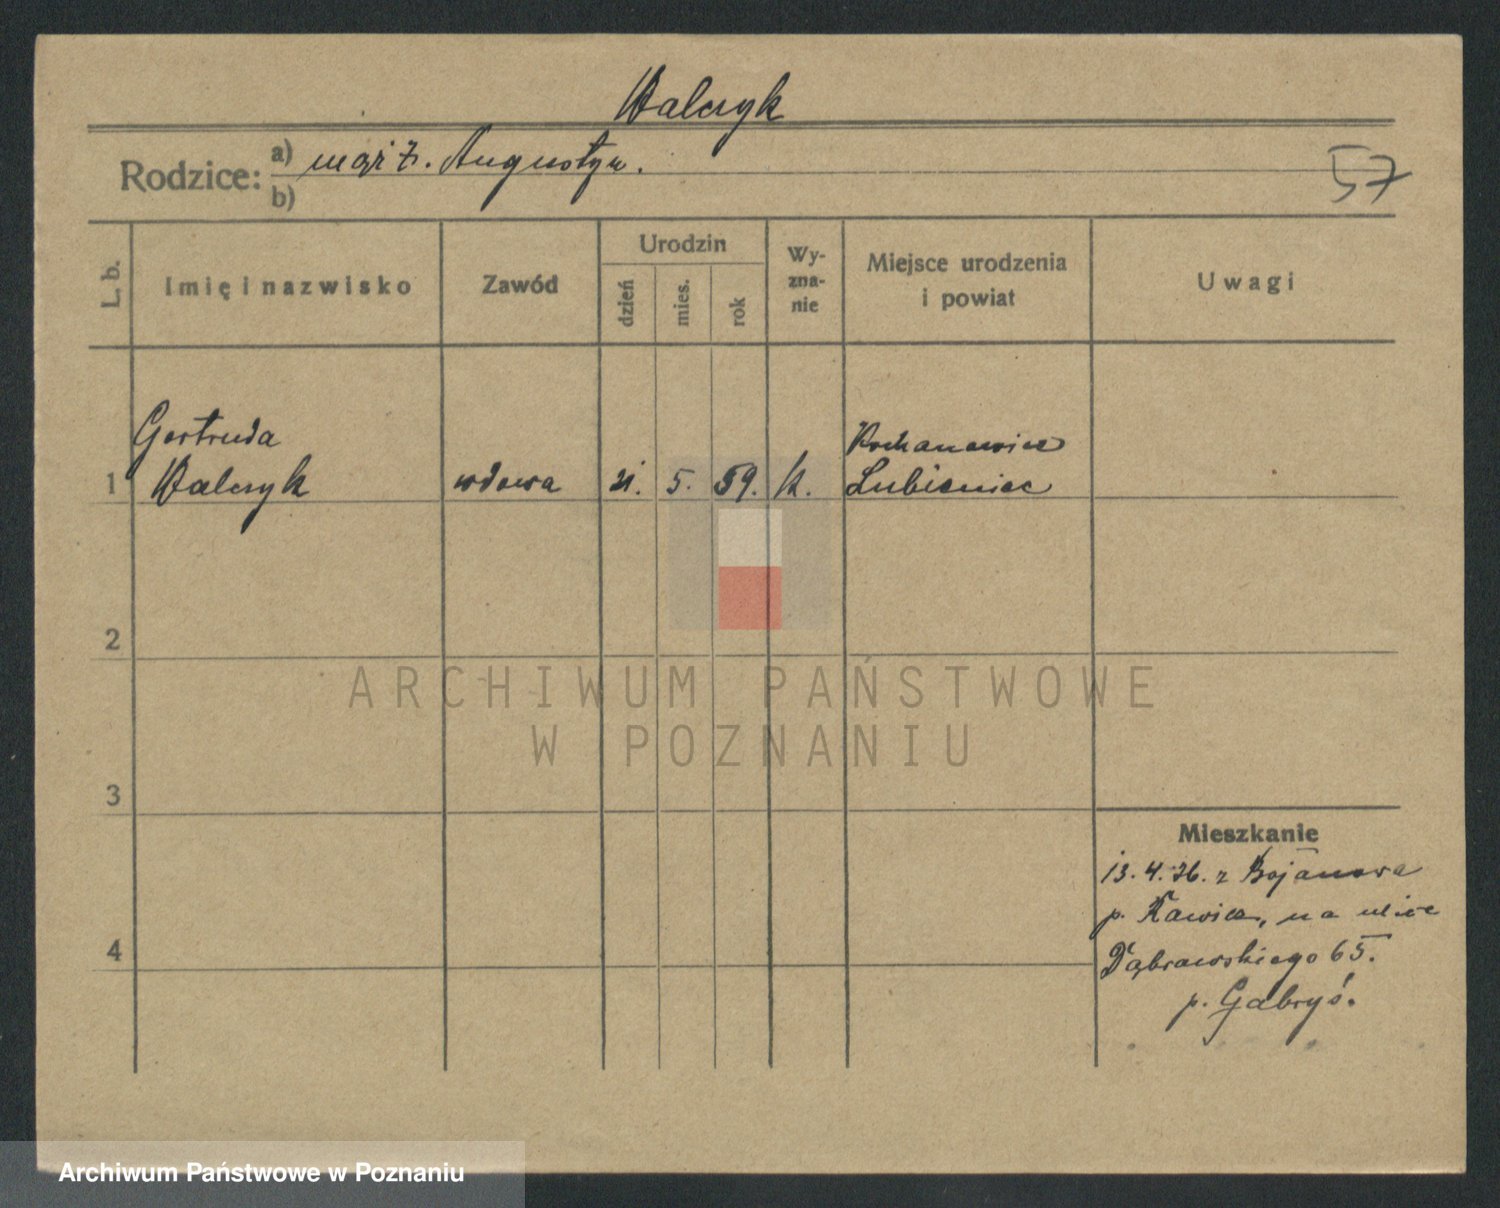 Walczyk
Rodzice: a) mąż ż. Augustyn.
b)
57
L. b.
Imię i nazwisko
Zawód
Urodzin
dzień
mies.
rok
Wy-
zna-
nie
Miejsce urodzenia
i powiat
Uwagi
Gertruda
1 Walczyk wdowa 21. 5. 59. k.
Kochanowice
Lubieniec
2
ARCHIWUM PAŃSTWOWE
W POZNANIU
3
4
Mieszkanie
13. 4. 26. z Bojanowa
p. Rawicz, na ulicę
Dąbrowskiego 65.
p. Gabryś.
Archiwum Państwowe w Poznaniu